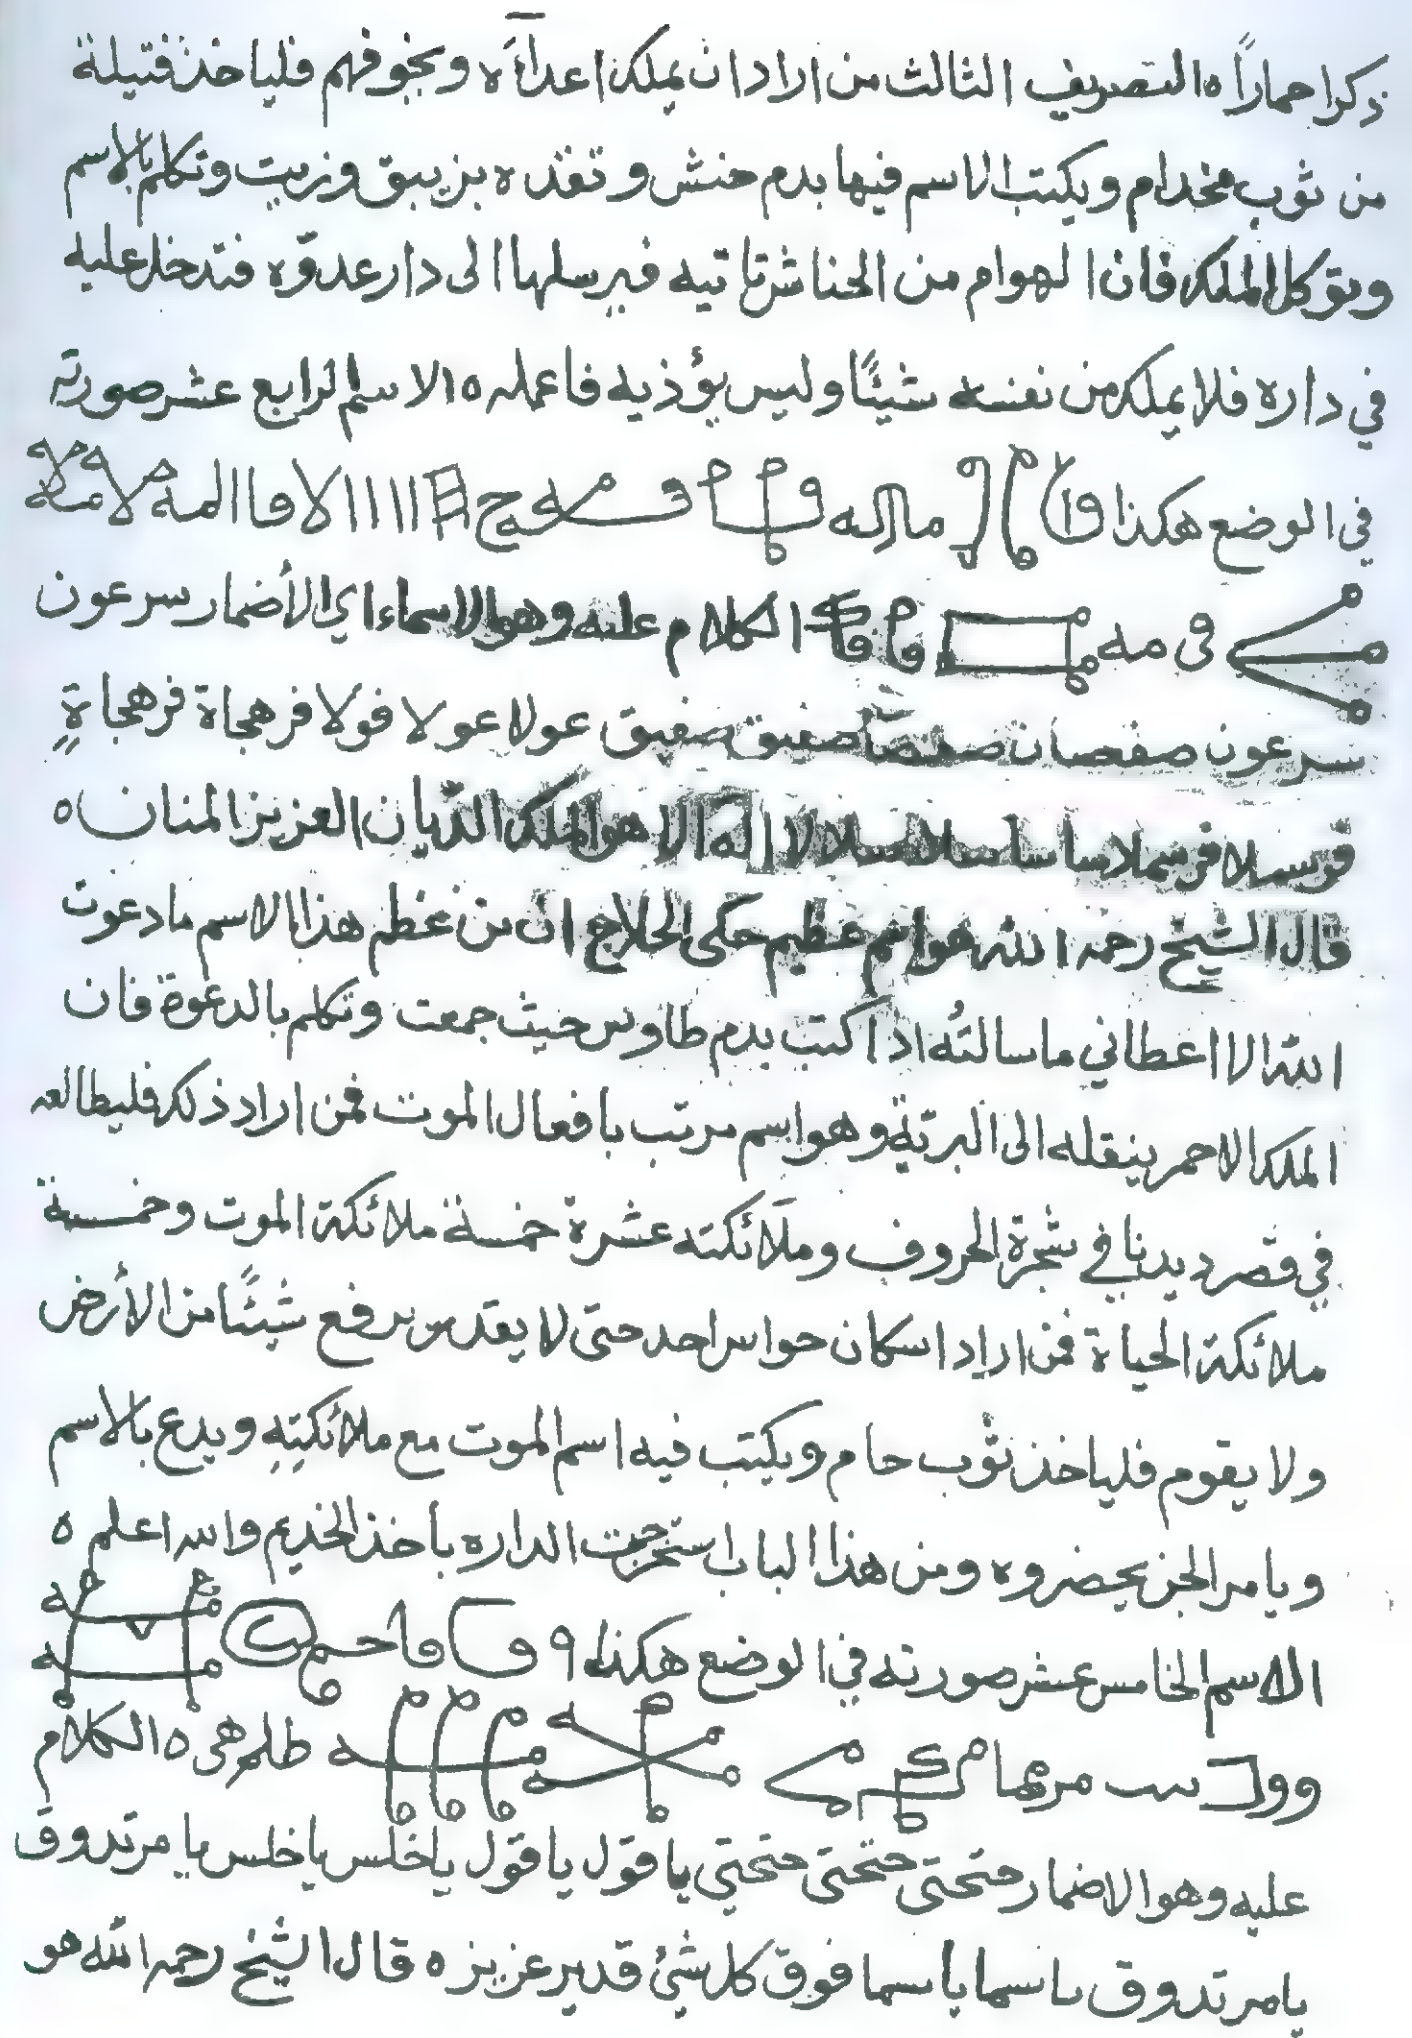 ذكرا حماراً ه التصريف الثالث من اراد ان يملك اعداَءَه ويخوفهم فلياخذ فتيلة
من ثوب مخدام ويكتب الاسم فيها بدم حنش وتقده بزيبق وزيت وتكلم بالاسم
وتوكل الملك فان الهوام من الحناش تاتيه فيرسلها الى دار عدوّه فتدخل عليه
في داره فلا يملك من نفسه شيئًا وليس يؤذيه فاعمله ه الاسم الرابع عشر صورته
في الوضع هكذا
الكلام عليه وهو الاسماء اي الأضمار سرعون
سرعون صفصان صفصان صفيق صفيق عولا عولا فولا فرهجاة فرهجاة
قرسملا قرسملا ساسا ساسا سلا سلا لا اله الا هو الملك الديّان العزيز المنان ه
قال الشيخ رحمه الله هو اسم عظيم حكى الحلاج ان من عظم هذا الاسم ما دعوت
الله الا اعطاني ما سالتُه اذا كتب بدم طاوس حيث جمعت وتكلم بالدعوة فان
الملك الاحمر ينقله الى البرية وهو اسم مرتب بافعال الموت فمن اراد ذلك فليطالعه
في قصر ديدنا في شجرة الحروف وملآئكته عشرة خمسة ملائكة الموت وخمسة
ملائكة الحياة فمن اراد اسكان حواس احد حتى لا يقدر يرفع شيئًا من الأرض
ولا يقوم فلياخذ ثوب حام ويكتب فيه اسم الموت مع ملائكتِهِ ويدع بالاسم
ويامر الجن يحضروه ومن هذا الباب استخرجت الداره باخذ الخديم والله اعلم ه
الاسم الخامس عشر صورته في الوضع هكذا
طلم هى ه الكلام
عليه وهو الاضمار حتحتى حتحتى حتحتي يا قول يا قول ياخلس ياخلس يا مرتدوق
يا مرتدوق ياسما ياسما فوق كل شئ قدير عزيز ه قال الشيخ رحمه الله هو